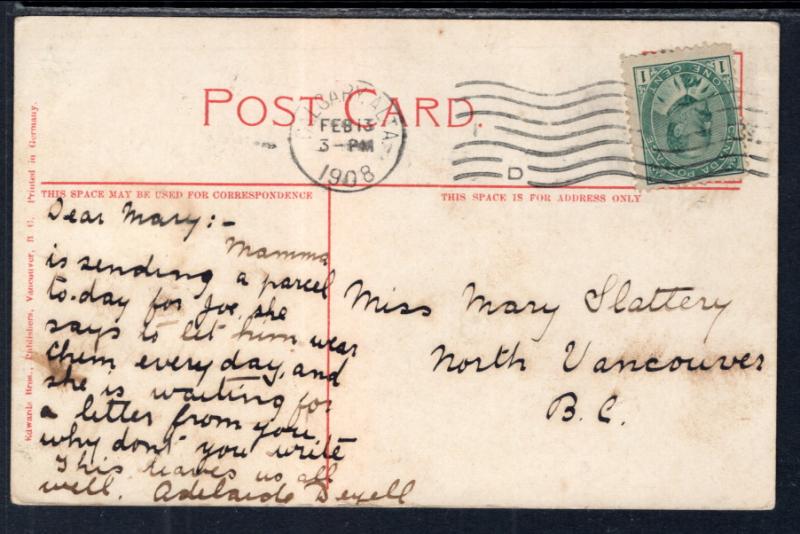 POST CARD.
CALGARY. ALTA
FEB 13
3 - PM
1908
D
1 1
ONE CENT
CANADA POSTAGE
THIS SPACE MAY BE USED FOR CORRESPONDENCE
THIS SPACE IS FOR ADDRESS ONLY
Dear Mary:-
Mamma
is sending a parcel
to-day for Joe, she
says to let him wear
them every day, and
she is waiting for
a letter from you
why dont you write
This leaves us all
well. Adelaide
Miss Mary Slattery
North Vancouver
B.C.
Edwards Bros., Publishers, Vancouver, B. C. Printed in Germany.